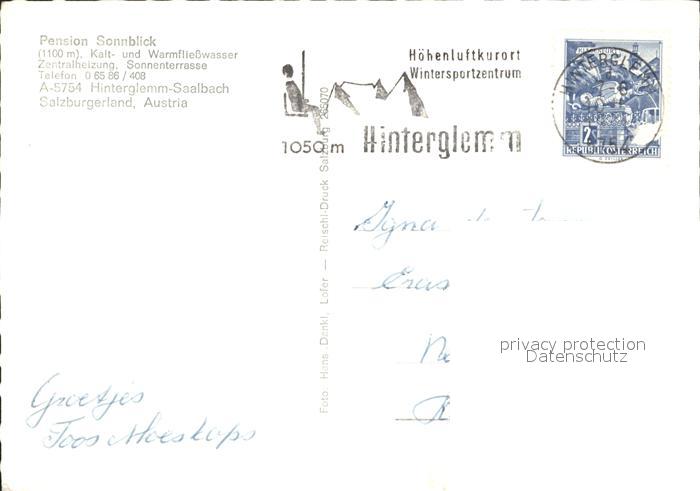 Pension Sonnblick
(1100 m), Kalt- und Warmfließwasser
Zentralheizung, Sonnenterrasse
Telefon 0 65 86 / 408
A-5754 Hinterglemm-Saalbach
Salzburgerland, Austria
Höhenluftkurort
Wintersportzentrum
1050 m Hinterglemm
HINTERGLEMM
5754
2S
REPUBLIK ÖSTERREICH
Foto Hans Dankl, Lofer — Reischl-Druck Salzburg 265070
privacy protection
Datenschutz
Groetjes
Toos Moeskops